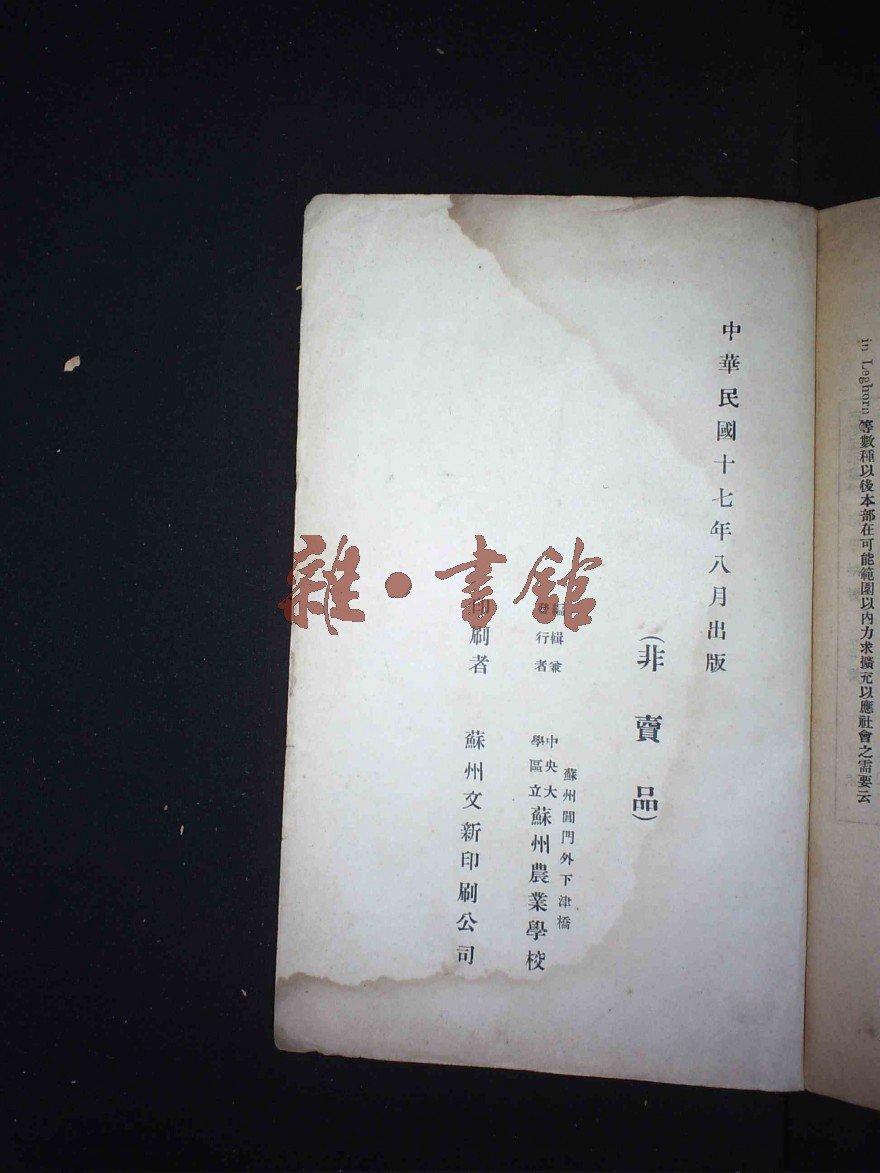 in Leghorn 等數種以後本部在可能範圍以內力求擴充以應社會之需要云
中華民國十七年八月出版
（非賣品）
編輯兼
發行者
蘇州閶門外下津橋
中央大
學區立蘇州農業學校
印刷者 蘇州文新印刷公司
雜·書館